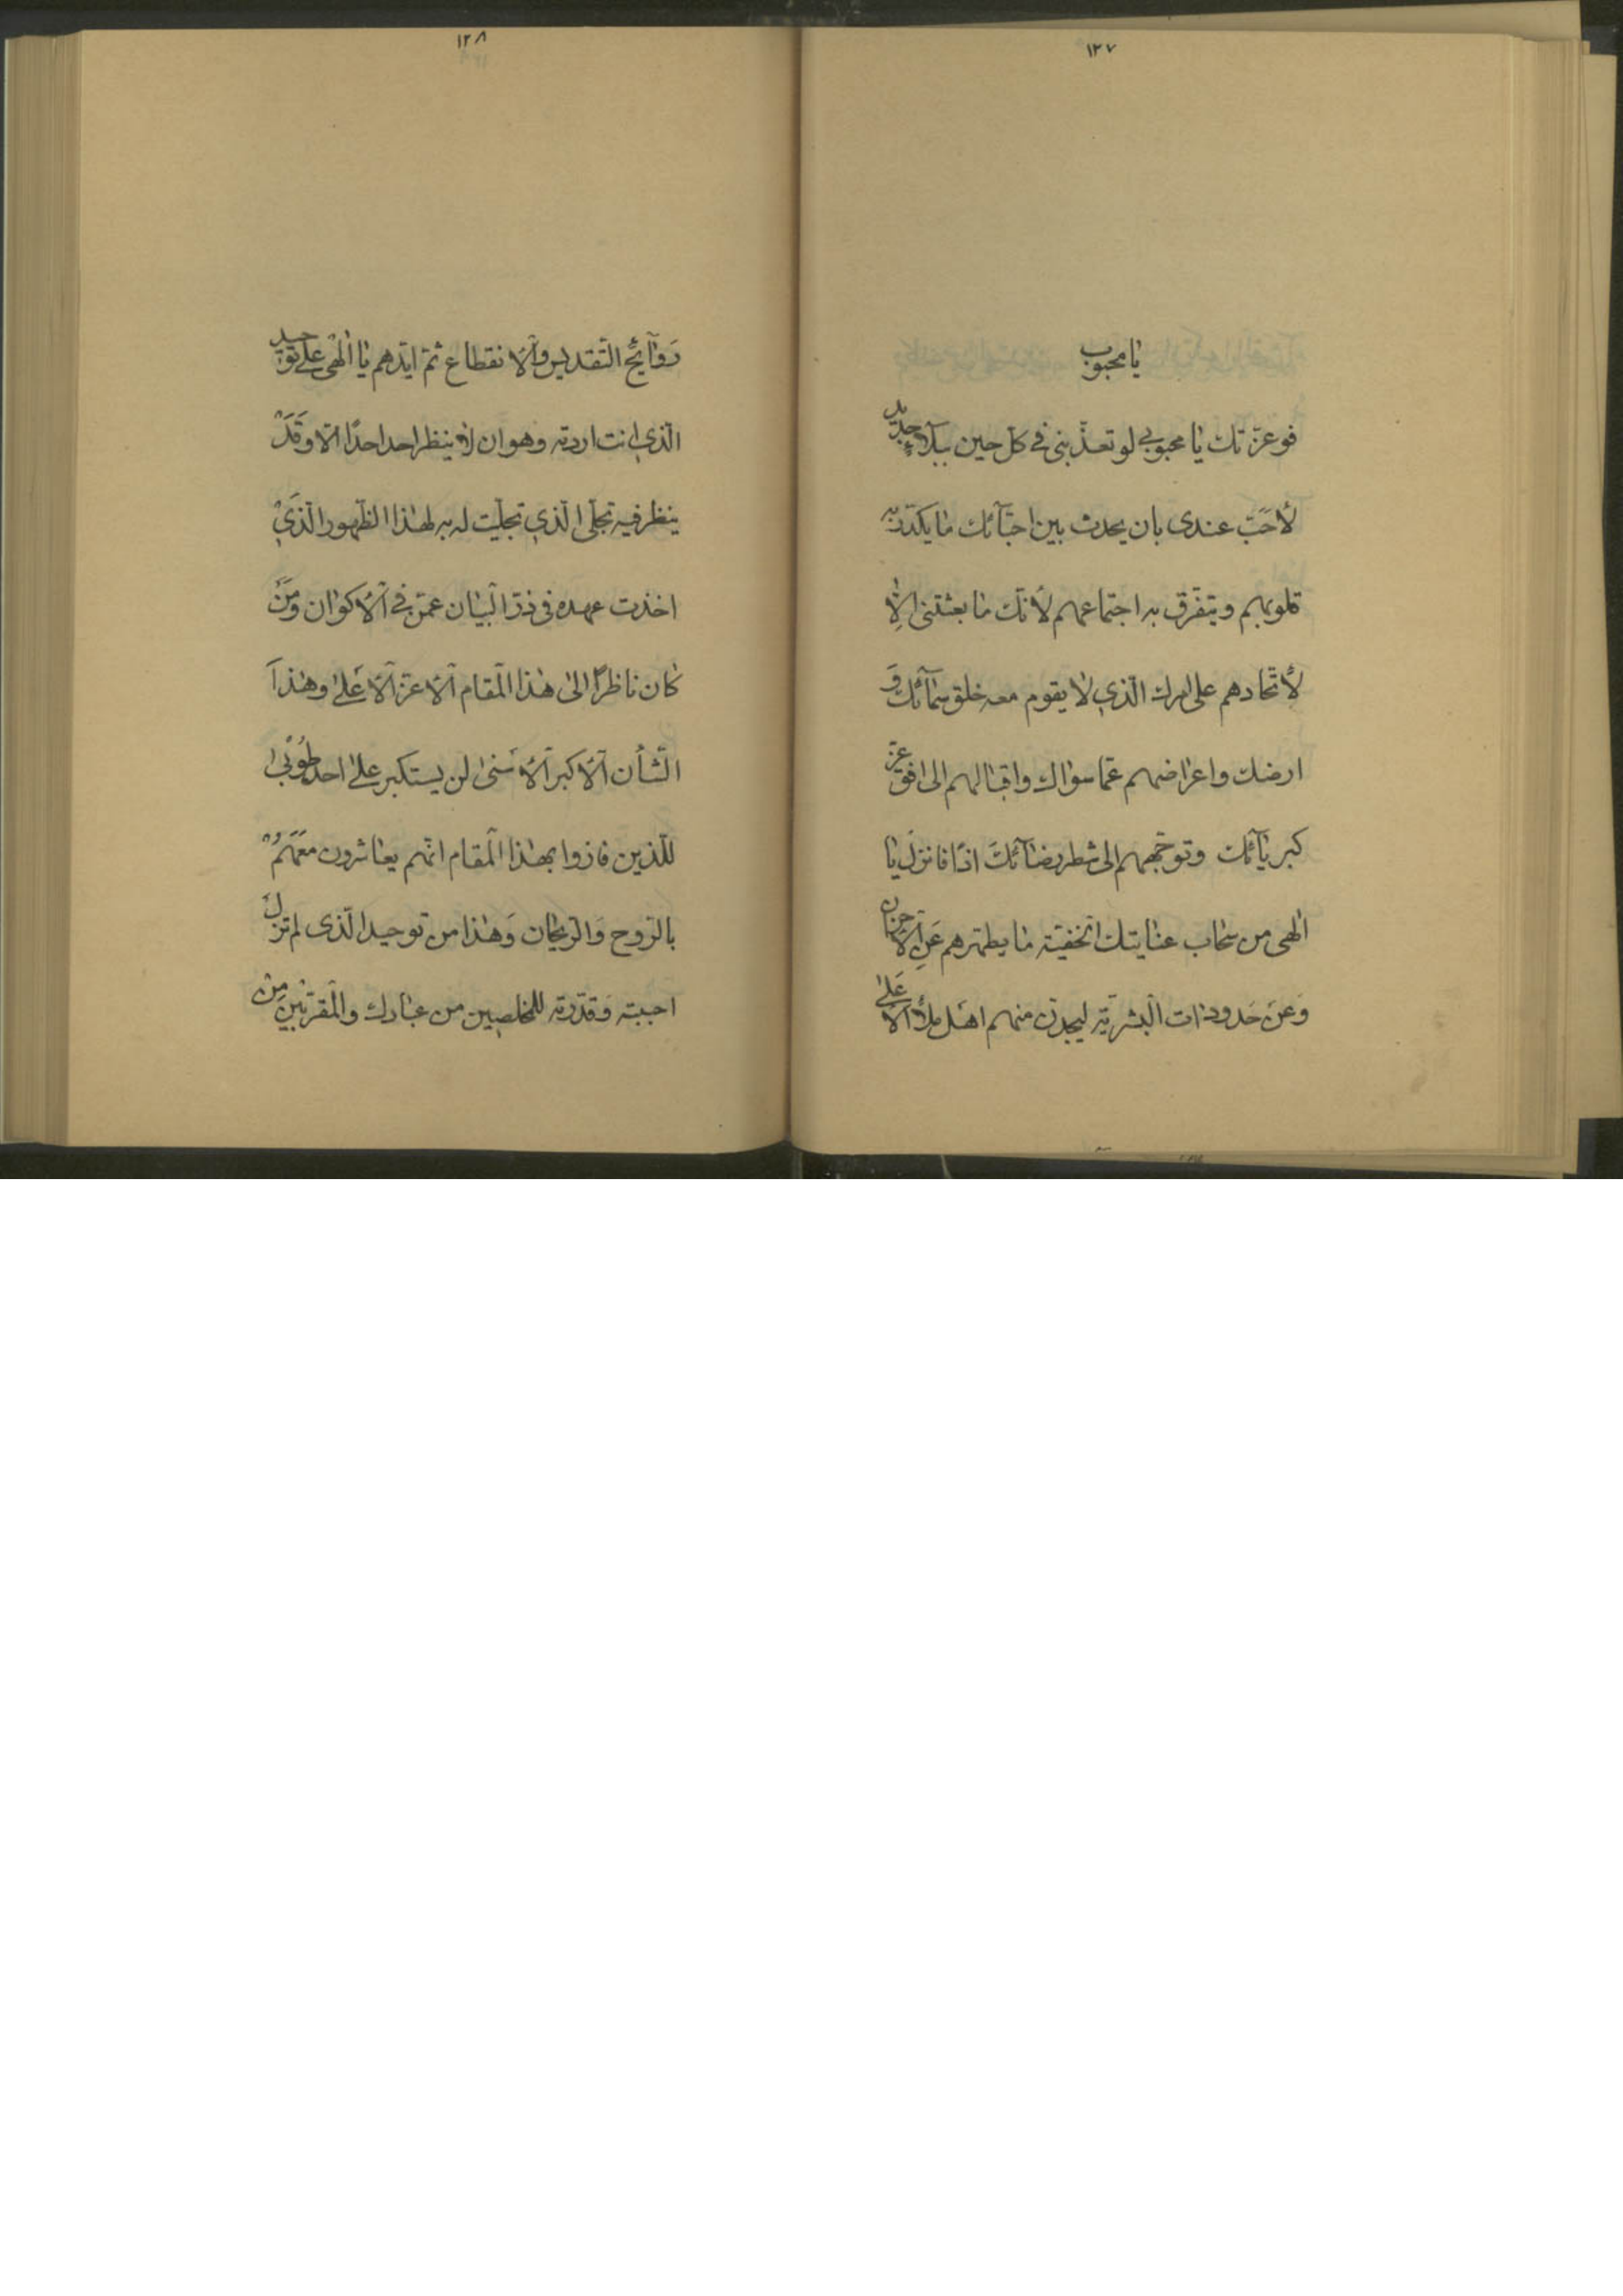 ١٢٧
یا محبوب
فوعزّتك یا محبوبي لو تعذّبنی فی کلّ حین ببلآءٍ جدید
لأحبّ عندی بان یحدث بین احبّآئك ما یکدّر به
قلوبهم و یتفرّق به اجتماعهم لأنّك ما بعثتنی الّا
لأتّحادهم علی امرك الّذی لا یقوم معه خلق سمآئك و
ارضك و اعراضهم عمّا سواك و اقبالهم الی افق عزّ
کبریآئك و توجّههم الی شطر رضآئك اذًا فانزل یا
الهی من سحاب عنایتك الخفیّة ما یطهّرهم عن الأحزان
و عن حدودات البشریّة لیجدنّ منهم اهل ملأ الأعلی
١٢٨
روآئح التّقدیس و الأنقطاع ثمّ ایّدهم یا الهی علی توحید
الّذی انت اردته و هو ان لا ینظر احد احدًا الّا و قد
ینظر فیه تجلّی الّذی تجلّیت له به لهذا الظّهور الّذی
اخذت عهده فی ذرّ البیان عمّن فی الأکوان و من
کان ناظرًا الی هذا المقام الأعزّ الأعلی و هذا
الشّأن الأکبر الأسنی لن یستکبر علی احد طوبی
للّذین فازوا بهذا المقام انّهم یعاشرون معهم
بالرّوح و الرّیحان و هذا من توحید الّذی لم تزل
احببته و قدّرته للمخلصین من عبادك و المقرّبین من